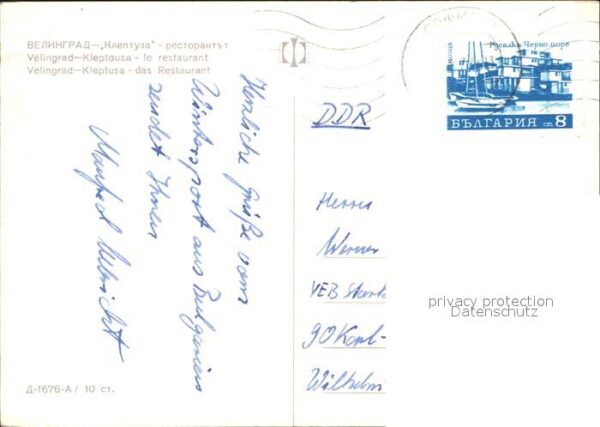 ВЕЛИНГРАД—„Клептуза" - ресторантът
Vélingrad—Kleptousa - le restaurant
Velingrad—Kleptusa - das Restaurant
Herzliche Grüße vom
Wintersport aus Bulgarien
sendet Ihnen
Manfred Ulbricht
Д-1676-А / 10 ст.
DDR
Русалка Черно море
поща
БЪЛГАРИЯ ст 8
Herrn
Werner
VEB Stark
90 Karl-
Wilhelm
privacy protection
Datenschutz